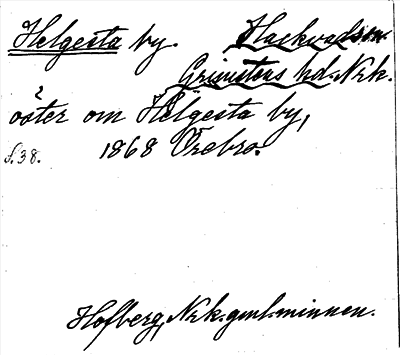 Helgesta by. Hackvad sn.
Grimstens hd. Nrk.
öster om Helgesta by,
s. 38. 1868 Örebro.
Hofberg, Nrk. gml. minnen.